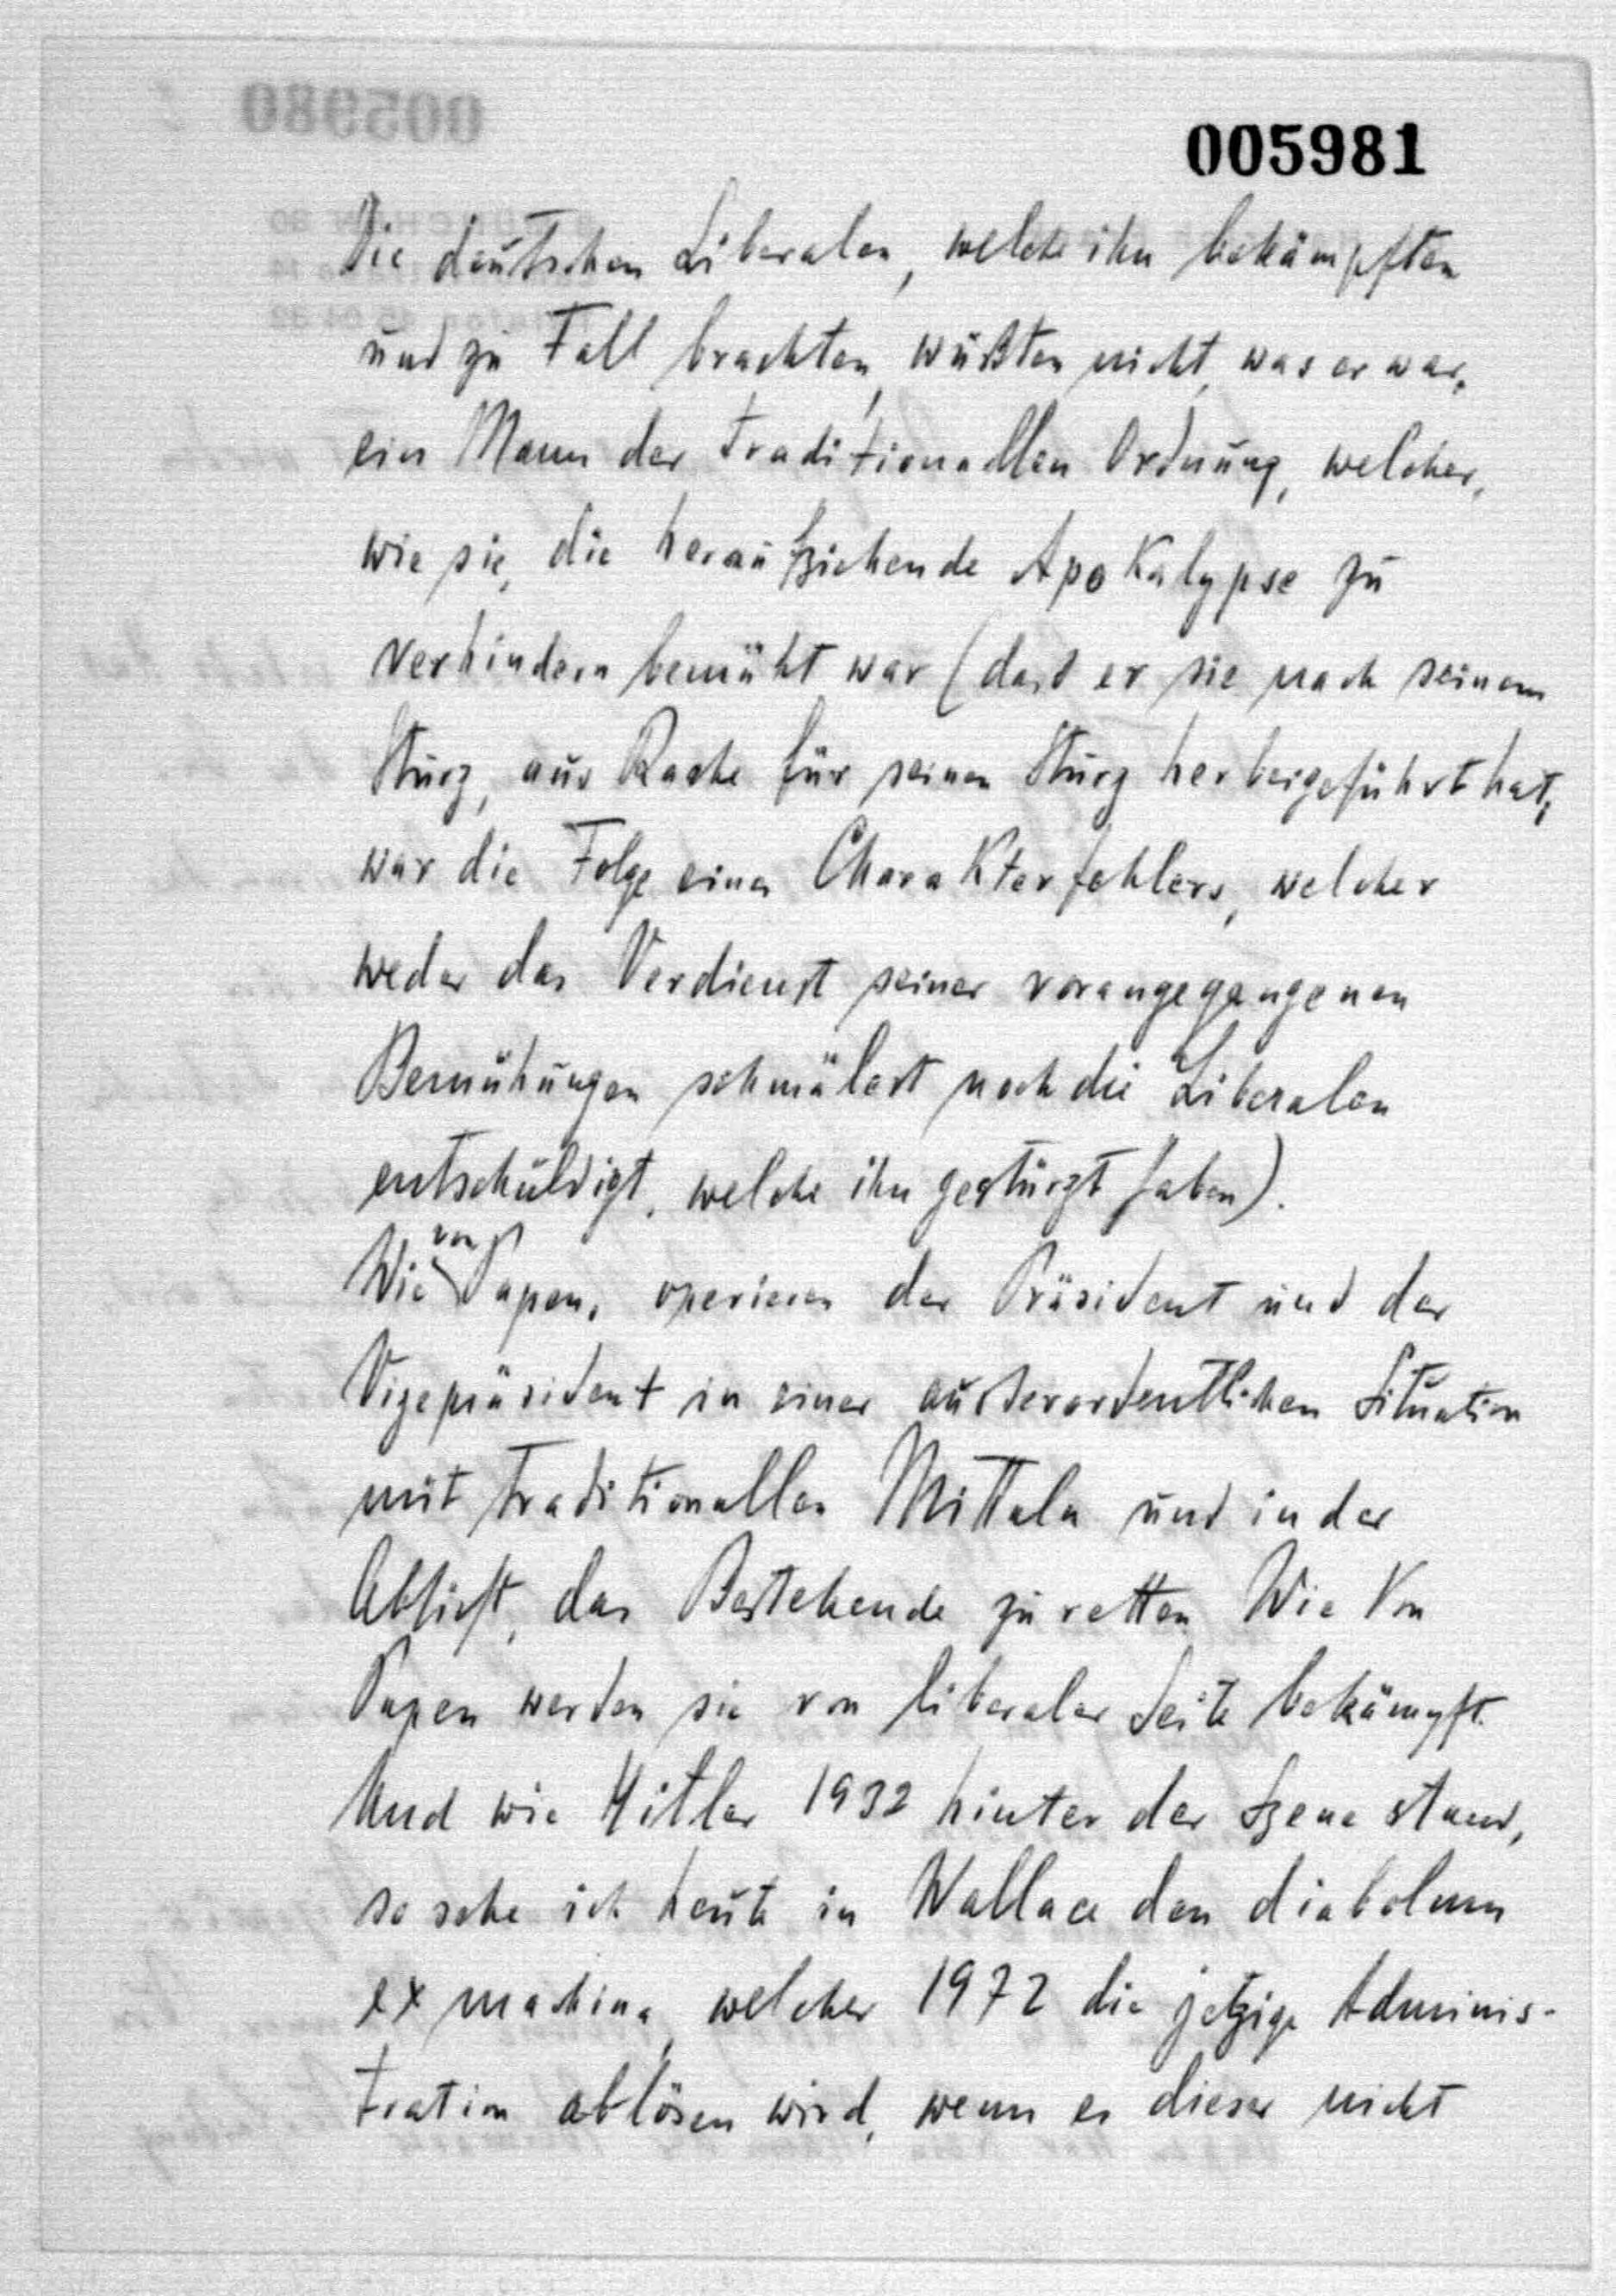 005980
005981
Die deutschen Liberalen, welche ihn bekämpften
und zu Fall brachten, wußten nicht, was er war,
ein Mann der traditionellen Ordnung, welcher,
wie sie, die heraufziehende Apokalypse zu
verhindern bemüht war (daß er sie nach seinem
Sturz, aus Rache für seinen Sturz herbeigeführt hat,
war die Folge eines Charakterfehlers, welcher
weder das Verdienst seiner vorangegangenen
Bemühungen schmälert noch die Liberalen
entschuldigt, welche ihn gestürzt haben).
Wie von Papen, operieren der Präsident und der
Vizepräsident in einer außerordentlichen Situation
mit traditionellen Mitteln und in der
Absicht, das Bestehende zu retten. Wie Von
Papen werden sie von liberaler Seite bekämpft.
Und wie Hitler 1932 hinter der Szene stand,
so sehe ich heute in Wallace den diabolum
ex machina, welcher 1972 die jetzige Adminis-
tration ablösen wird, wenn es dieser nicht